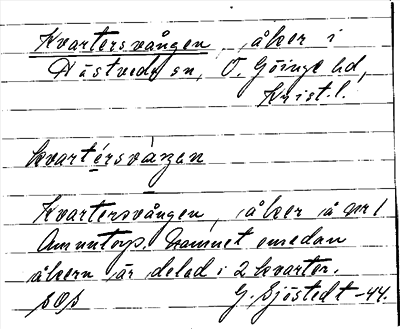 Kvartersvången, åker i
Hästveda sn, Ö. Göinge hd,
Krist. l.
kvartérsvàŋen
Kvartersvången, åker å nr 1
Ammntorp. Namnet emedan
åkern är delad i 2 kvarter.
G. Sjöstedt -44.